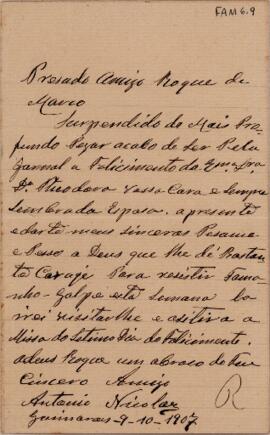 FAM 6.9
Presado Amigo Roque de
Marco
Surpendido do Mais Pro
fundo Pezar acabo de Ler Pelo
Jornal o Falicimento da Exma. Sra.
D. Theodora Vossa Cara e Sempre
Lembrada Espoza. apresenta
e darte meus sinceros Pezames
e Pesso a Deus que lhe dê Bastan
te Corage Para rezistir Tama
nho - Golpe esta Semana la
irei vizitarlhe e asistir a
Missa do Setimo Dia do Falicimento.
adeus Roque um abraso do Teu
Cincero Amigo
Antonio Nicolao
Guimaraes - 9 - 10 - 1907
R